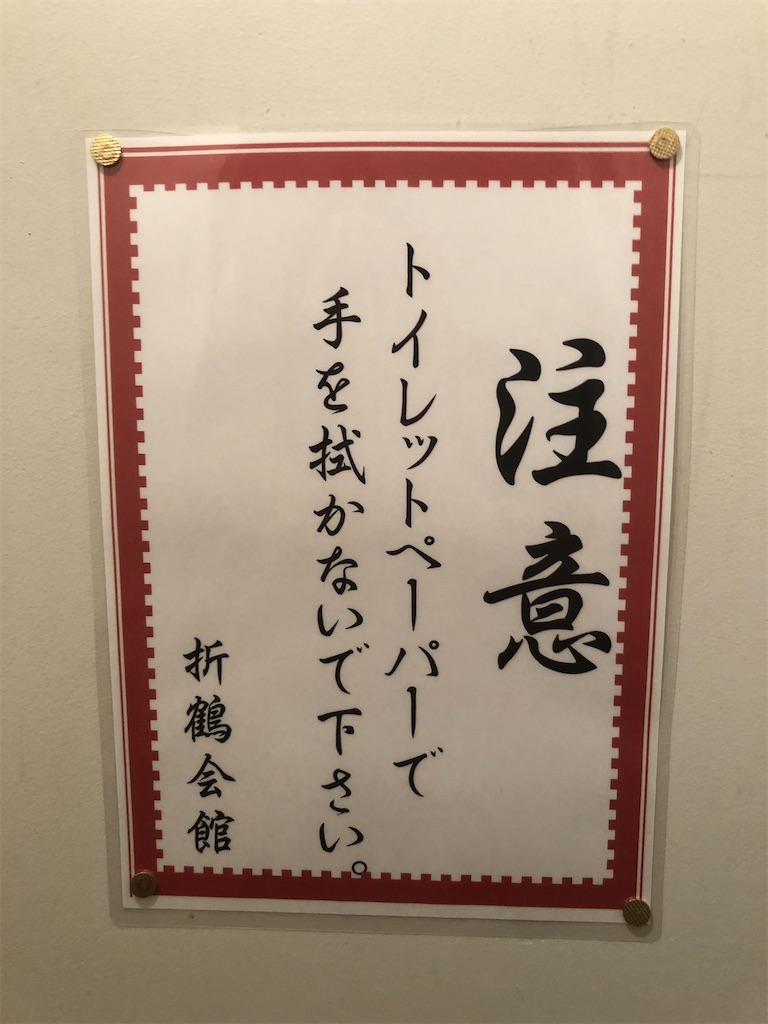 注意
トイレットペーパーで
手を拭かないで下さい。
折鶴会館